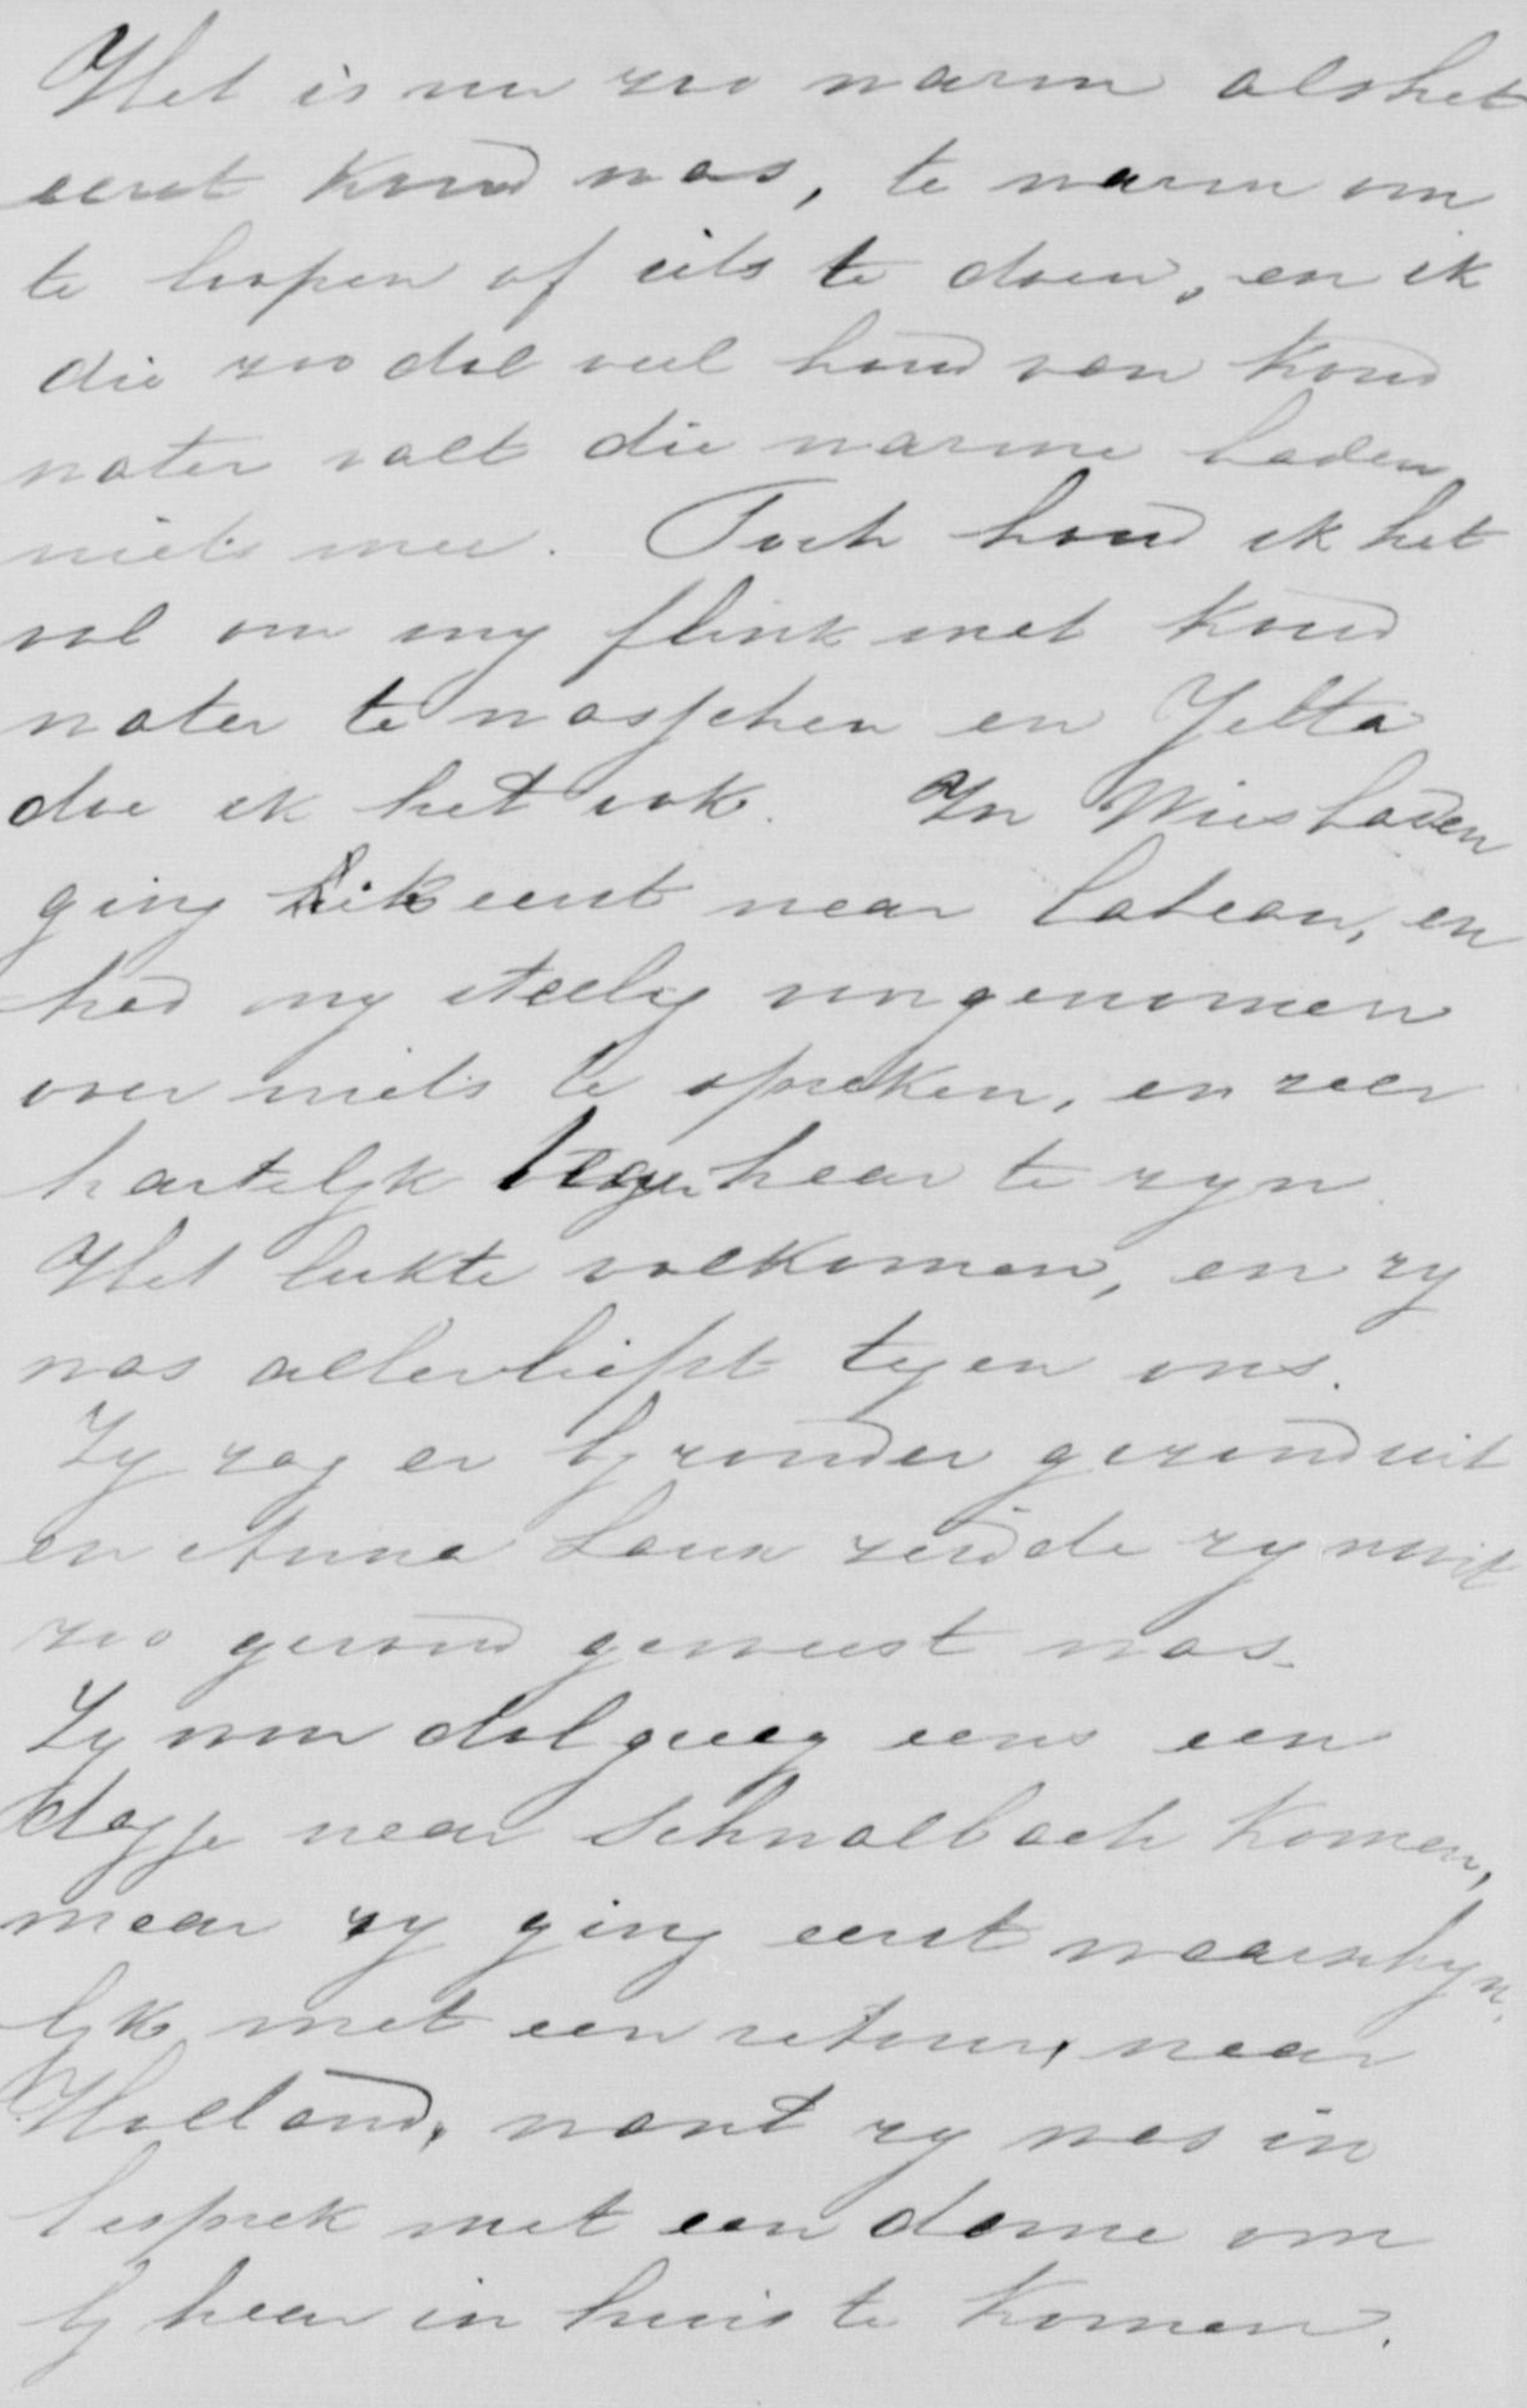 Het is nu zoo warm als het
eerst koud was, te warm om
te loopen of iets te doen, en ik
die zoo dol veel houd van koud
water valt die warme baden
niets mee. Toch houd ik het
vol om my flink met koud
water te wasschen en Jelta
doe ik het ook. In Wiesbaden
ging ik eerst naar en
had my stellig voorgenomen
over niets te spreken, en zeer
hartelyk tegen haar te zyn.
Het lukte volkomen, en zy
was allerliefst tegen ons.
Zy zag er byzonder gezond uit
en Anna zeide zy nooit
zoo gezond geweest was.
Zy wou dolgraag eens een
dagje naar Schwalbach komen,
maar zy ging eerst waarschyn-
lyk met een retour, naar
Holland, want zy was in
besprek met een dame om
by haar in huis te komen.